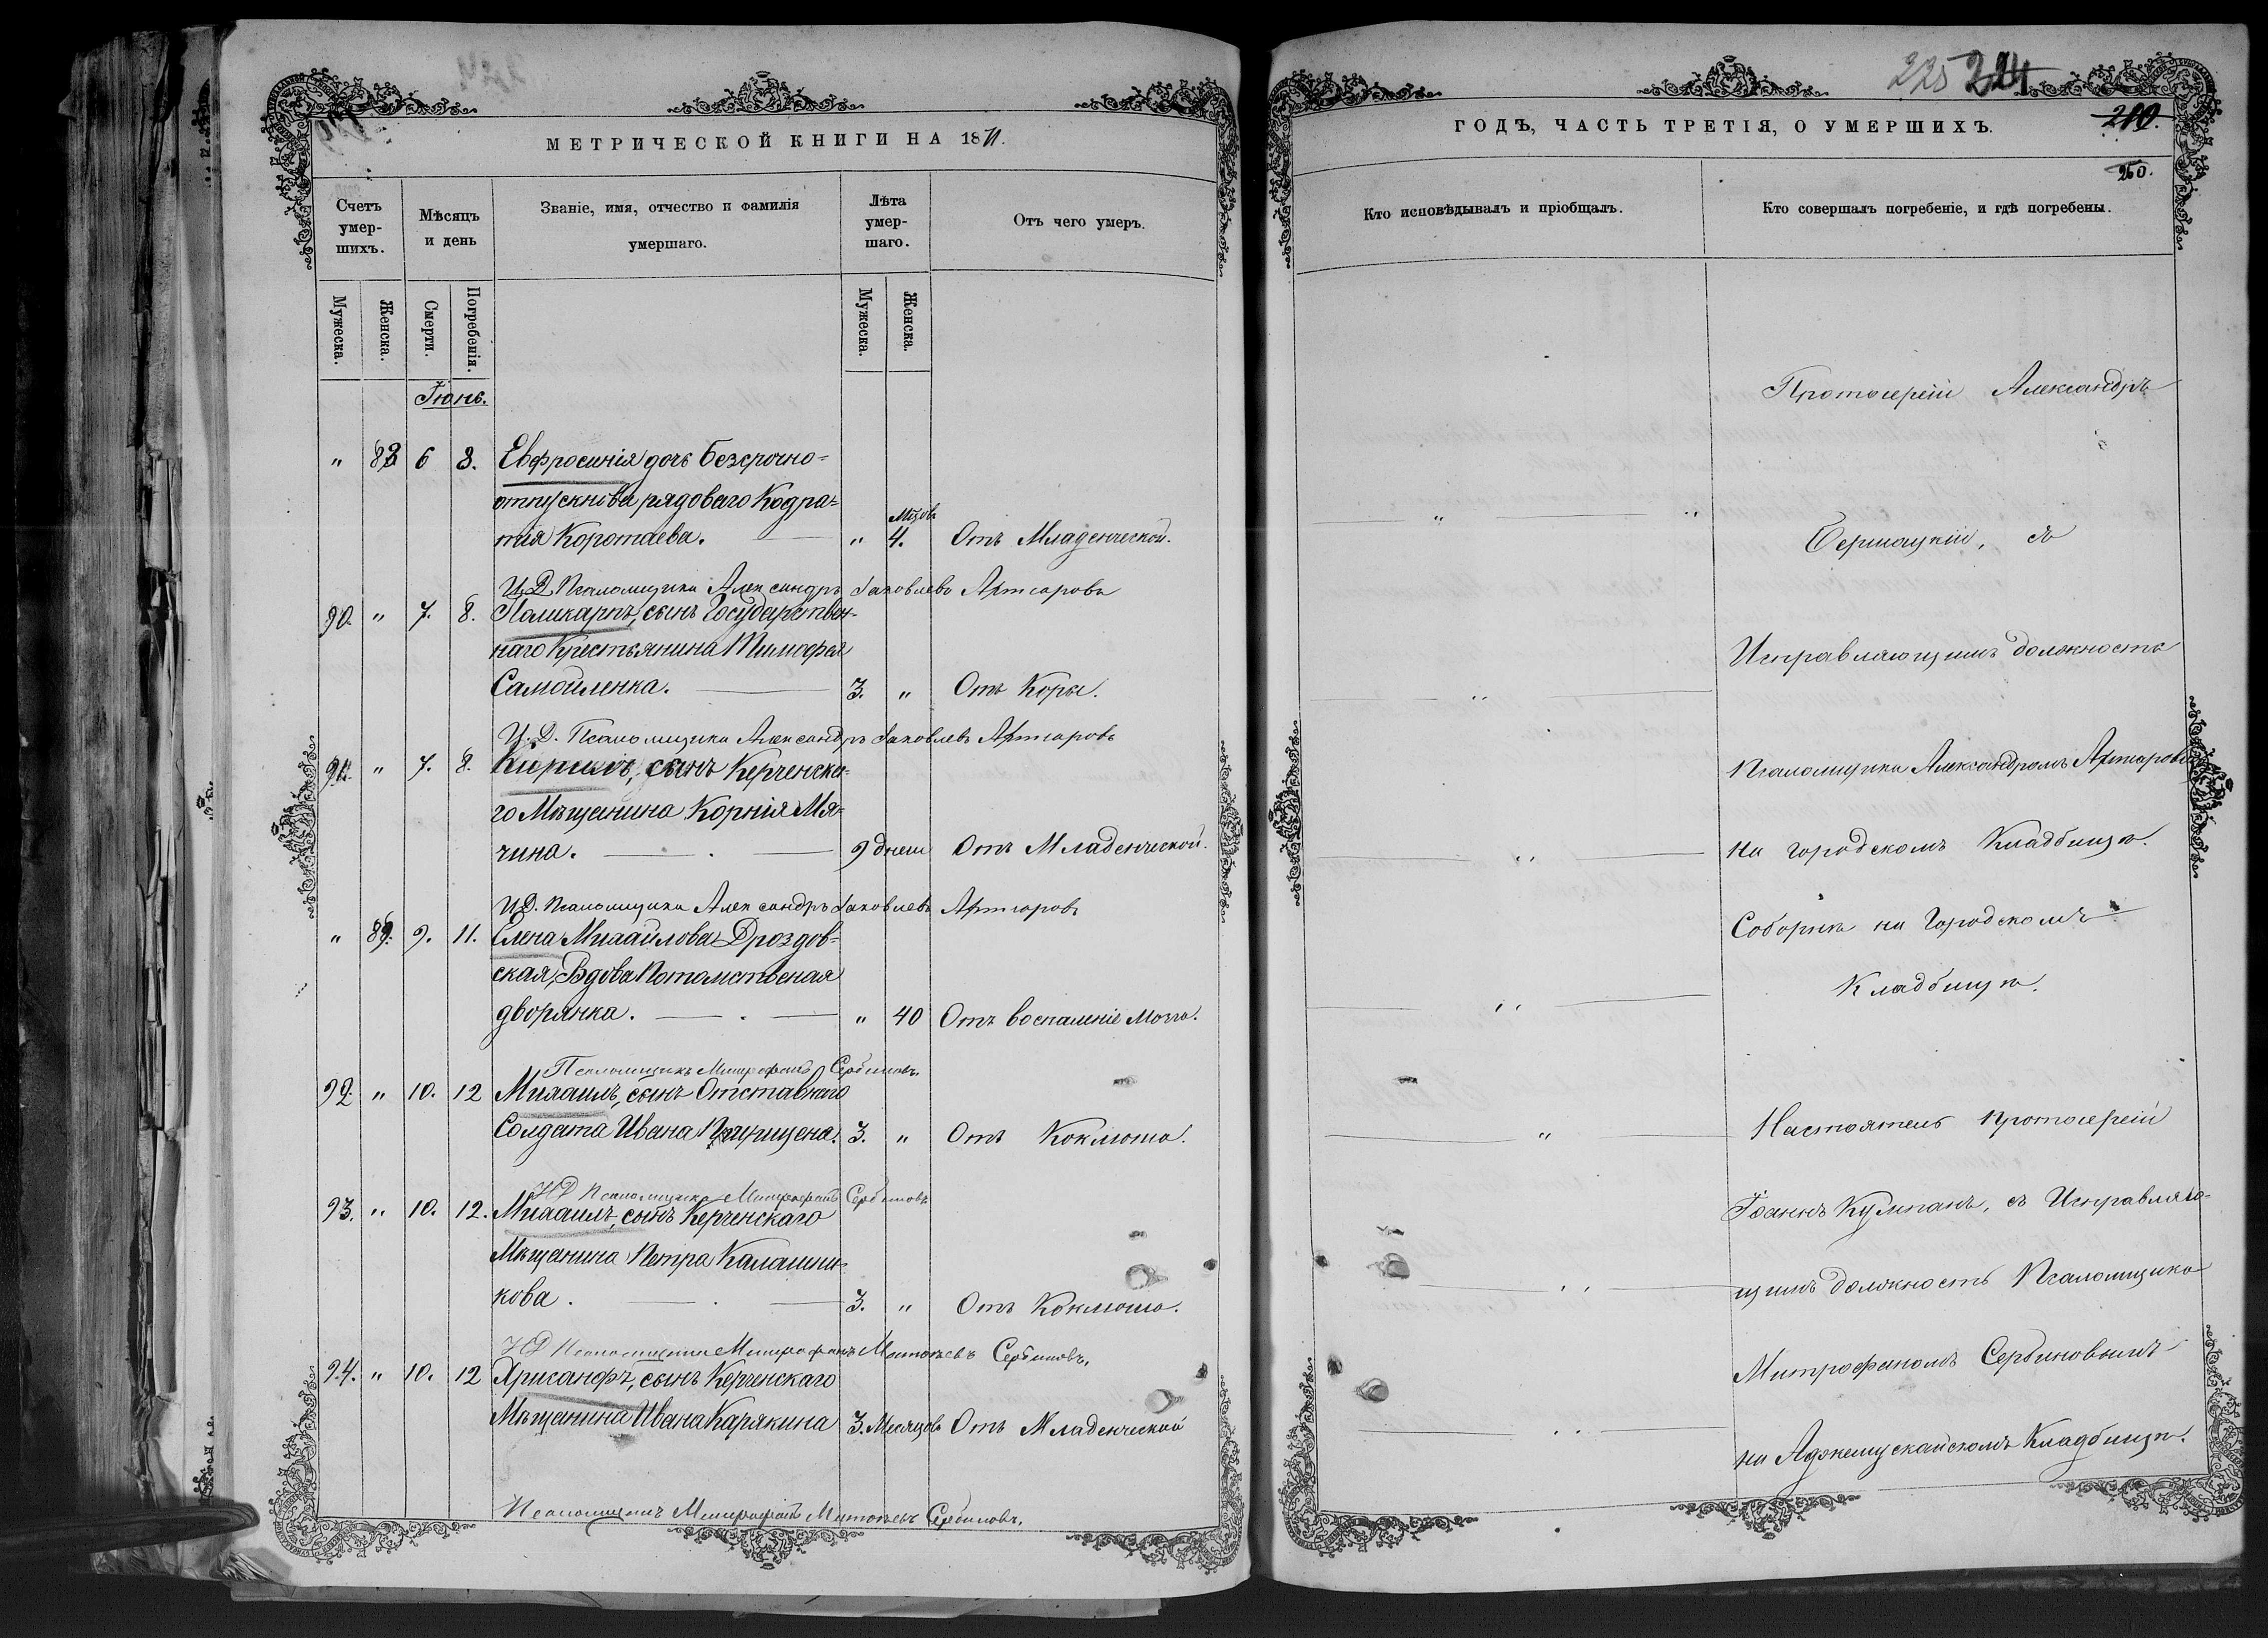 МЕТРИЧЕСКОЙ КНИГИ НА 1871.
Счетъ умер-шихъ.
Мѣсяцъ и день
Званіе, имя, отчество и фамилія умершаго.
Лѣта умер-шаго.
Отъ чего умеръ.
Мужеска.
Женска.
Смерти.
Погребенія.
Мужеска.
Женска.
Іюнь.
" 88 6 8. Евфросинія дочь безсрочно=
отпускнова рядоваго Кодра=
тія Коротаева. " 4. Мцов Отъ Младенческой.
И.Д. Псаломщика Александръ Іаковлевъ Артсаровъ
90. " 7. 8. Поликарпъ, сынъ Государствен-
наго Крестьянина Тимофея
Самойленка. 3. " Отъ Коры.
И.Д. Псаломщика Александръ Іаковлевъ Артсаровъ
91. " 7. 8. Кирилъ, сынъ Керченска-
го Мѣщанина Корнія Мя-
чина. 9 дней Отъ Младенческой.
И.Д. Псаломщика Александръ Іаковлевъ Артсаровъ
" 89. 9. 11. Елена Михайлова Дроздов=
ская, Вдова Потомственая
дворянка. " 40 Отъ воспаленіе Мозга.
Псаломщикъ Митрофанъ Сербиновъ.
92. " 10. 12 Михаилъ, сынъ Отставнаго
Солдата Ивана 3. " Отъ Коклюша.
И.Д. Псаломщика Митрофанъ Сербиновъ
93. " 10. 12. Михаилъ, сынъ Керченскаго
Мѣщанина Петра Калашни-
кова. 3. " Отъ Коклюша.
И.Д. Псаломщика Митрофанъ Сербиновъ.
94. " 10. 12 Хрисанфъ, сынъ Керченскаго
Мѣщанина Ивана Карякина 3. Месяцовъ Отъ Младенческой
Псаломщикъ Митрофанъ Сербиновъ.
225 224
210.
250.
ГОДЪ, ЧАСТЬ ТРЕТІЯ, О УМЕРШИХЪ.
Кто исповѣдывалъ и пріобщалъ.
Кто совершалъ погребеніе, и гдѣ погребены.
Протоіерей Александръ
съ
Исправляющимъ должность
Псаломщика Александромъ Артсаровъ
на городскомъ Кладбищѣ.
Соборнѣ на Городскомъ
Кладбищѣ.
Настоятель Протоіерей
Іоаннъ Кумпанъ, съ Исправляю-
щимъ должность Псаломщика
Митрофаномъ Сербиновымъ
на Аджемускайскомъ Кладбищѣ.